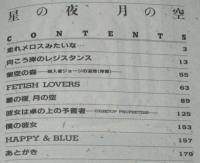 星の夜 月の空
CONTENTS
走れメロスみたいな… 3
向こう岸のレジスタンス 13
星空の森 55
FETISH LOVERS 63
星の夜 月の空 89
彼女は卓の上の予言者 125
僕の彼女 153
HAPPY & BLUE 157
あとがき 179